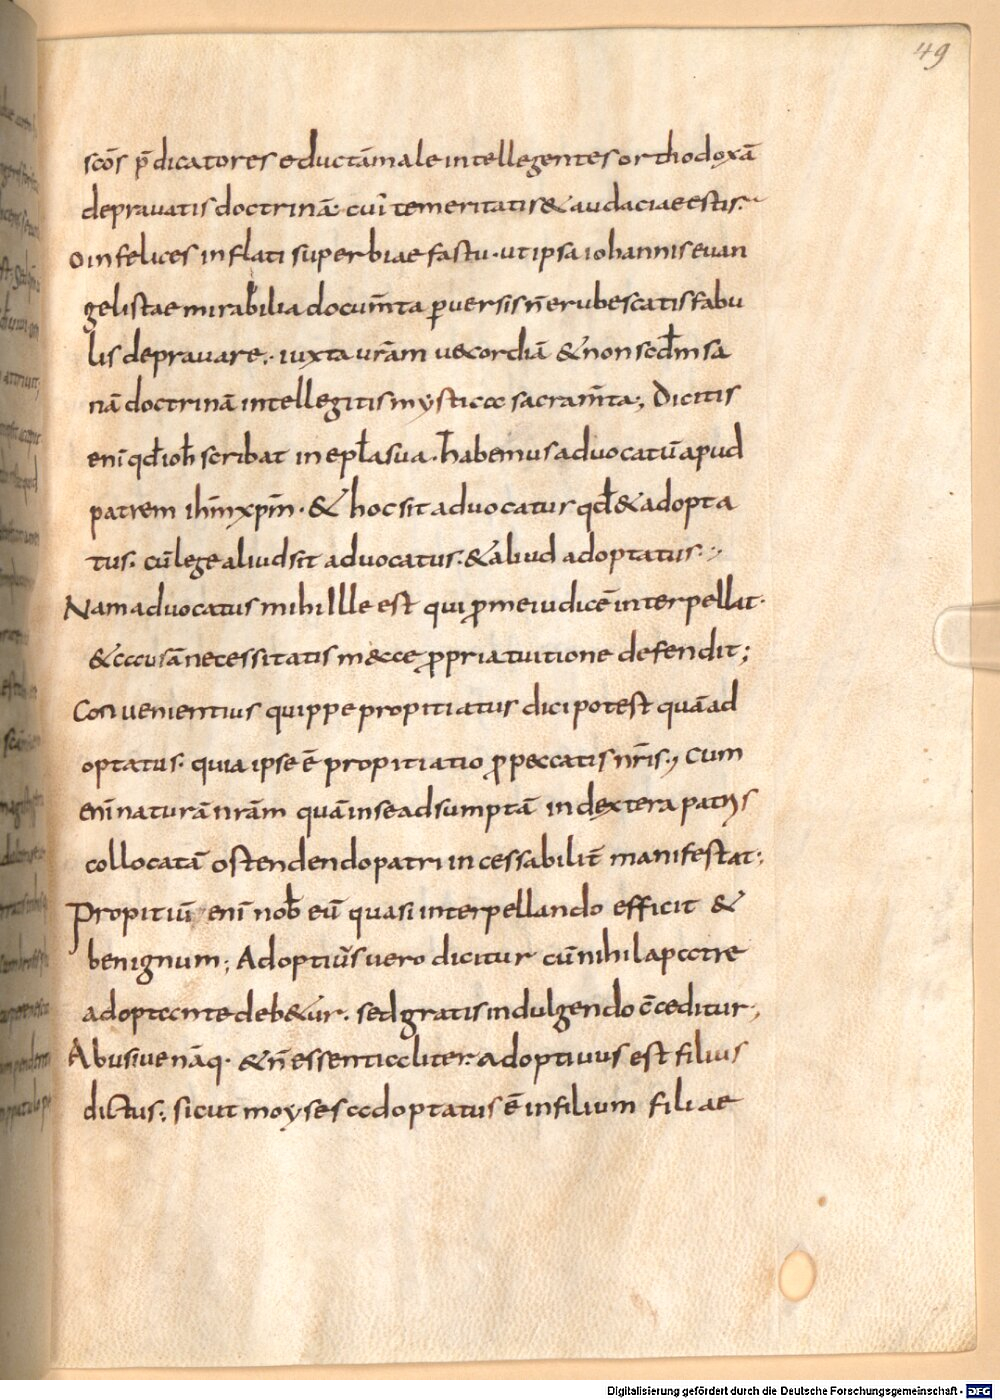 49
scōs p̄dicatores educta male intellegentes orthodoxā
depravatis doctrinā· cuī temeritatis & audaciae estis·
o infelices inflati superbiae fastu· ut ipsa iohannis evan
gelistae mirabilia docum̄ta pversis n̄ erubescatis fabu
lis depravare· iuxta vr̄am vecordiā & non scd̄m sa
nā doctrinā intellegitis mystica sacram̄ta; Dicitis
enī qd̄ ioh̄ scribat in epl̄a sua· habemus advocatū apud
patrem ih̄m xp̄m· & hoc sit advocatur qd̄ & adopta
tus· cū lege aliud sit advocatus· & aliud adoptatus·
Nam advocatus mihi llle est qui p me iudicē interpellat·
& causā necessitatis meae ppria tuitione defendit;
Convenientius quippe propitiatus dici potest quā ad
optatus· quia ipse ē propitiatio p peccatis nr̄is; cum
enī naturā nr̄am quā in se adsumptā in dextera patris
collocatā ostendendo patri incessabilit̄ manifestat;
Propitiū enī nob̄ eū quasi interpellando efficit &
benignum; Adoptiūs vero dicitur cū nihil a patre
adoptante deb&ur· sed gratis indulgendo c̄ceditur;
Abusive nāq· & n̄ essentialiter adoptivus est filius
dictus; sicut moyses adoptatus ē in filium filiae
Digitalisierung gefördert durch die Deutsche Forschungsgemeinschaft - DFG